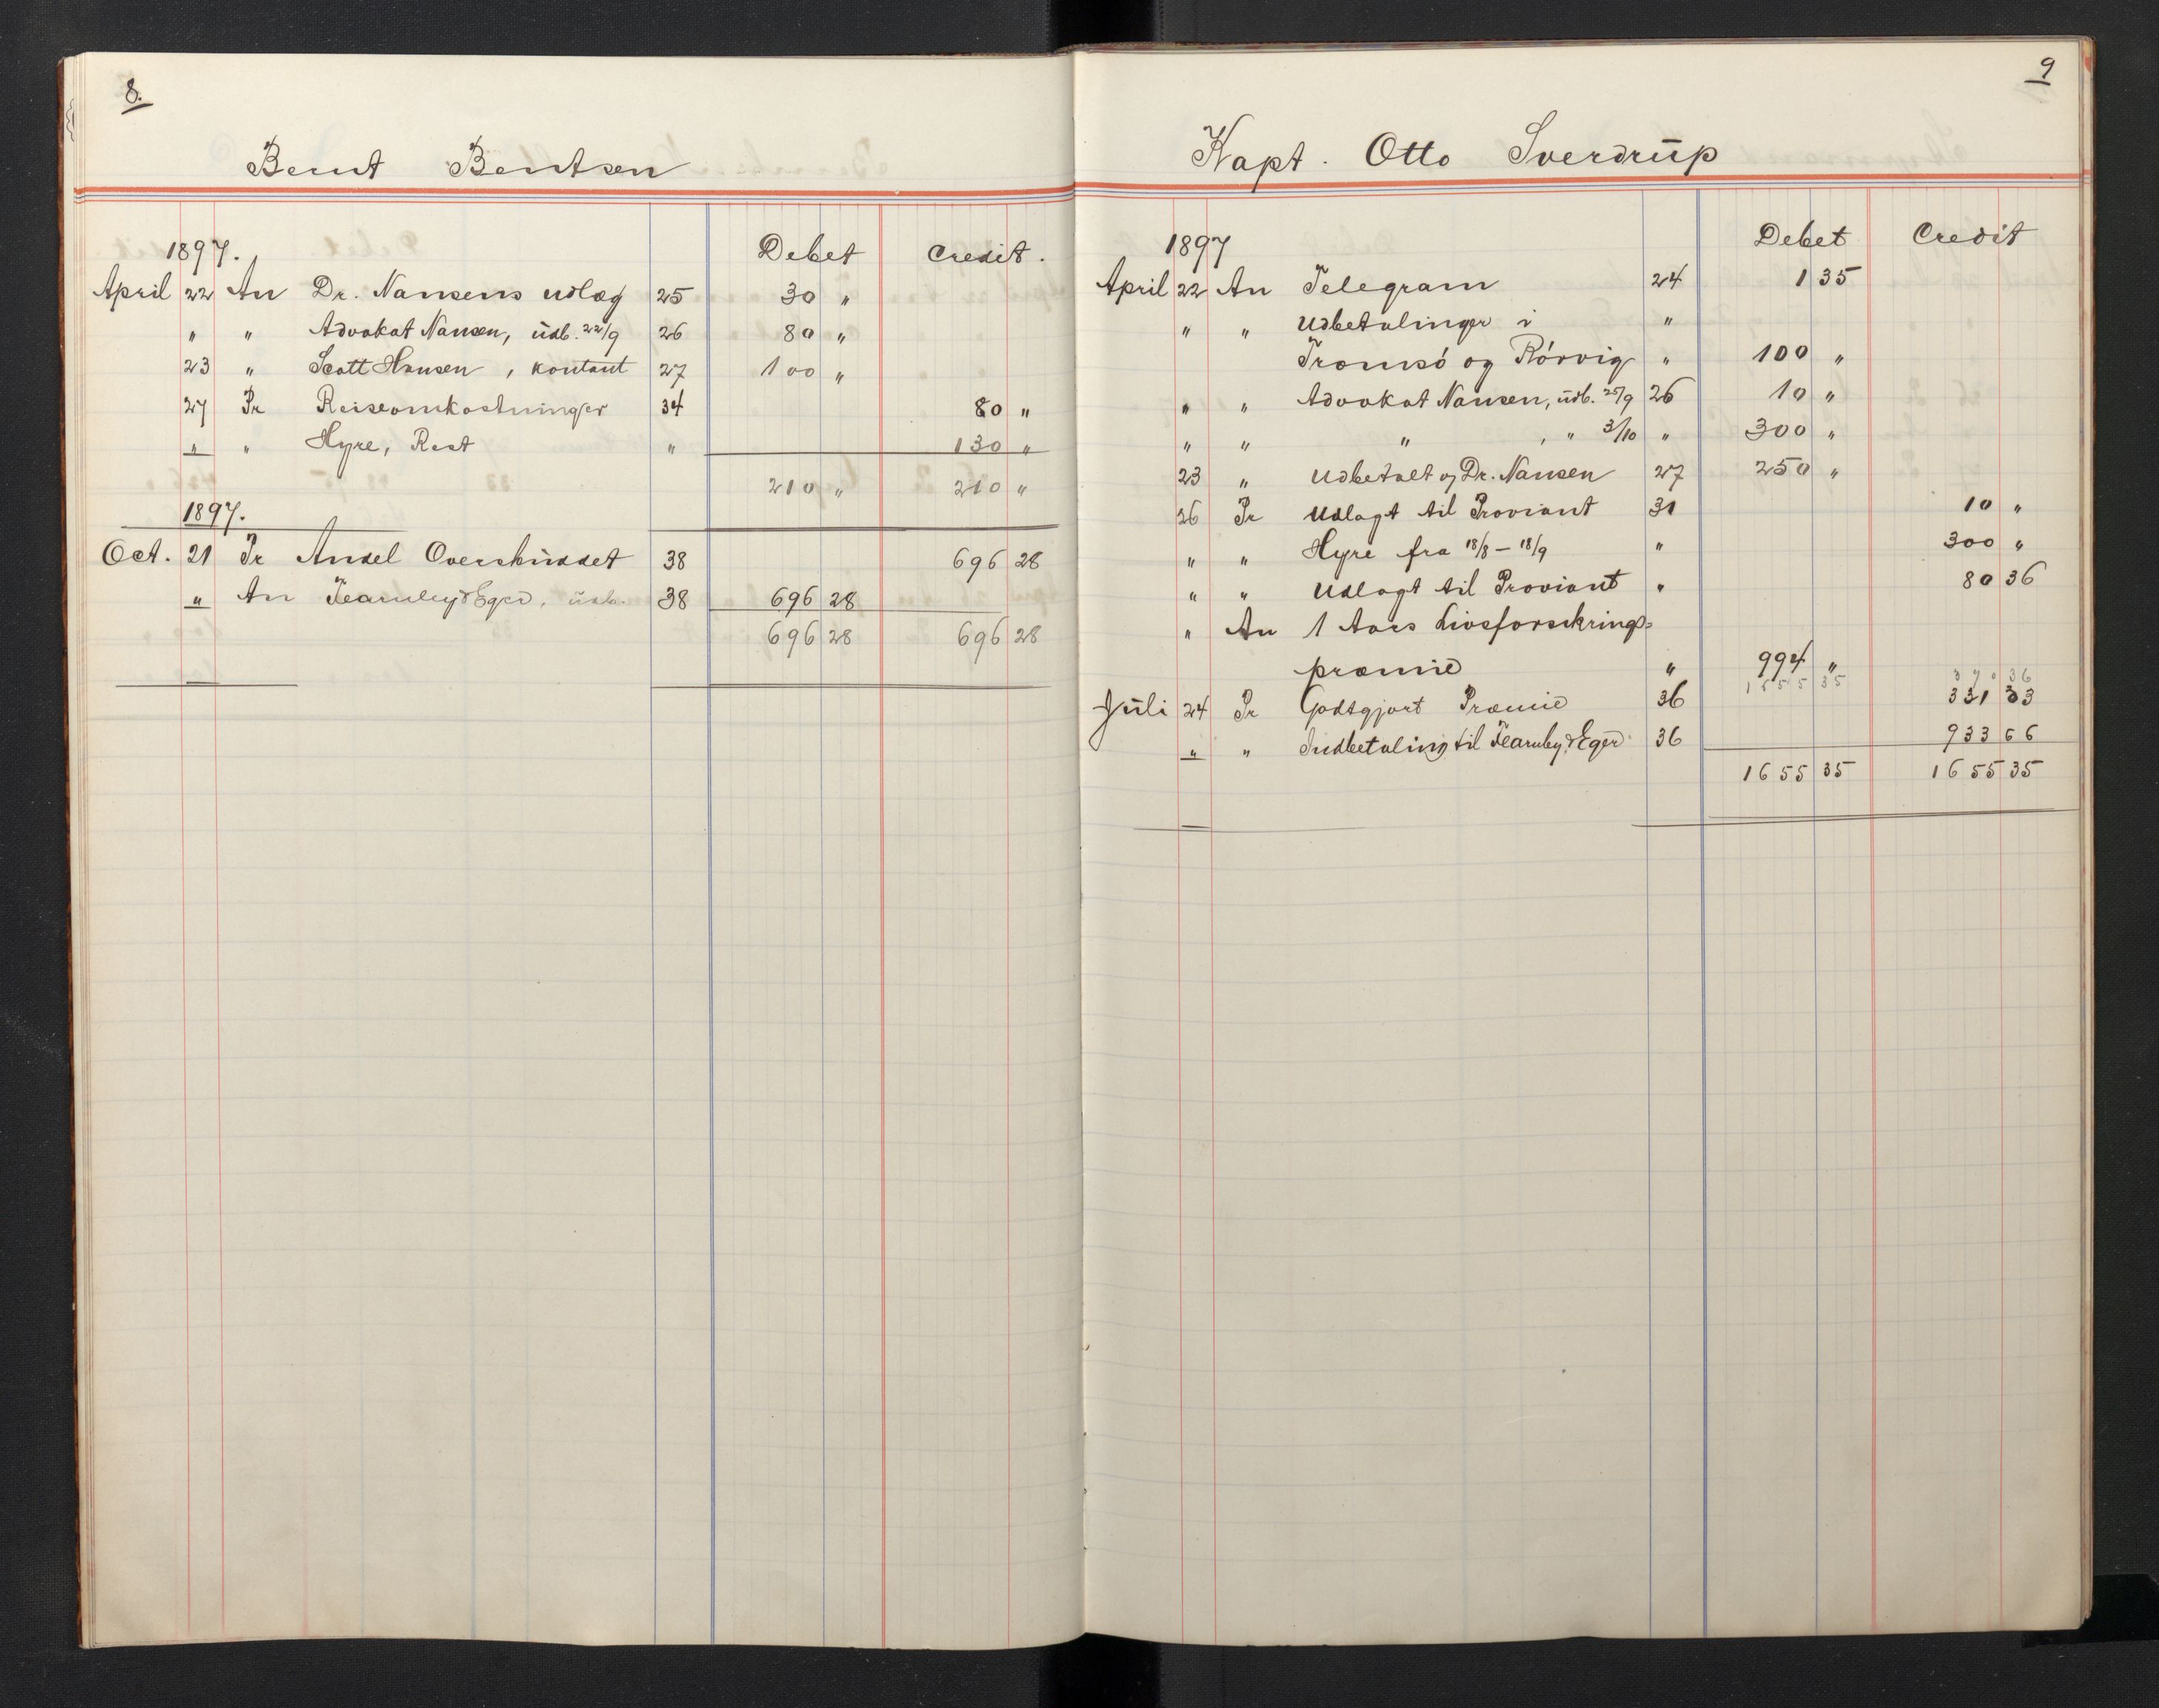 8.
Bernt Bentsen
1897. Debet Credit.
April 22 An Dr. Nansens udlæg 25 30 "
" " Advokat Nansen, udb. 22/9 26 80 "
23 " Scott Hansen, kontant 27 100 "
27 Pr Reiseomkostninger 34 80 "
" " Hyre, Rest " 130 "
210 " 210 "
1897.
Oct. 21 Pr Andel Overskuddet 38 696 28
" An Fearnley & Eger, udb. 38 696 28
696 28 696 28
9
Kapt. Otto Sverdrup
1897 Debet Credit
April 22 An Telegram 24 1 35
" " Udbetalinger i "
Tromsø og Rørvig " 100 "
" " Advokat Nansen, udb. 25/9 26 10 "
" " " , " 3/10 " 300 "
23 " Udbetalt af Dr. Nansen 27 250 "
26 Pr Udlagt til Proviant 31 10 "
" " Hyre fra 18/8 - 18/9 " 300 "
" " Udlagt til Proviant " 80 36
" An 1 Aars Livsforsikrings=
præmie " 994 "
1655 35 390 36
Juli 24 Pr Godtgjort Præmie 36 331 33
" " Indbetaling til Fearnley & Eger 36 933 66
1655 35 1655 35